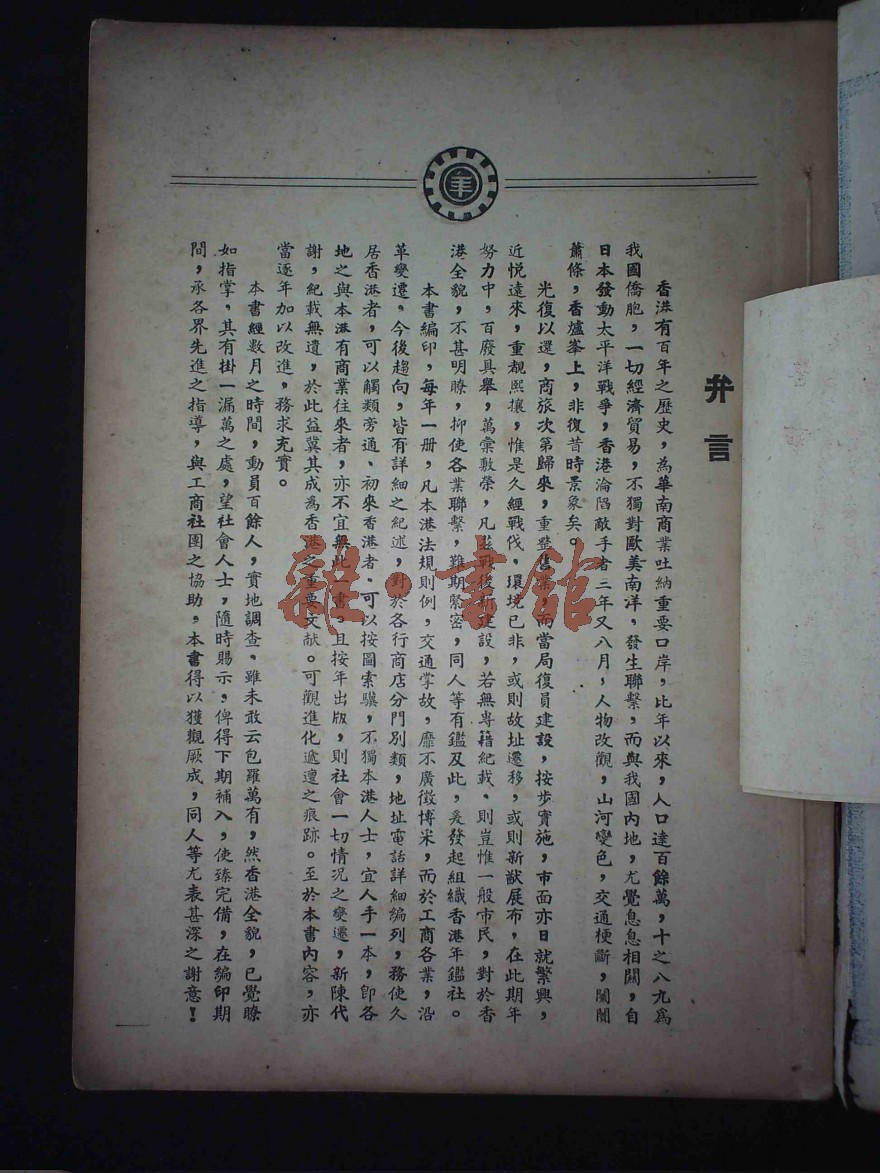 弁言
香港有百年之歷史，為華南商業吐納重要口岸，比年以來，人口達百餘萬，十之八九為
我國僑胞，一切經濟貿易，不獨對歐美南洋，發生聯繫，而與我國內地，尤覺息息相關，自
日本發動太平洋戰爭，香港淪陷敵手者三年又八月，人物改觀，山河變色，交通梗斷，闤闠
蕭條，香爐峯上，非復昔時景象矣。
光復以還，商旅次第歸來，重整舊業，而當局復員建設，按步實施，市面亦日就繁興，
近悅遠來，重覩熙攘，惟是久經戰伐，環境已非，或則故址遷移，或則新猷展布，在此期年
努力中，百廢具舉，萬彙敷榮，凡茲戰後新建設，若無專籍紀載，則豈惟一般市民，對於香
港全貌，不甚明瞭，抑使各業聯繫，難期緊密，同人等有鑑及此，爰發起組織香港年鑑社。
本書編印，每年一册，凡本港法規則例，交通掌故，靡不廣徵博采，而於工商各業，沿
革變遷。今後趨向，皆有詳細之紀述，對於各行商店分門別類，地址電話詳細編列，務使久
居香港者，可以觸類旁通、初來香港者，可以按圖索驥，不獨本港人士，宜人手一本，即各
地之與本港有商業往來者，亦不宜無此一書。且按年出版，則社會一切情況之變遷，新陳代
謝，紀載無遺，於此益冀其成為香港之重要文献。可觀進化遞遭之痕跡。至於本書內容，亦
當逐年加以改進，務求充實。
本書經數月之時間，動員百餘人，實地調查，雖未敢云包羅萬有，然香港全貌，已覺瞭
如指掌，其有掛一漏萬之處，望社會人士，隨時賜示，俾得下期補入，使臻完備，在編印期
間，承各界先進之指導，與工商社團之協助，本書得以獲觀厥成，同人等尤表甚深之謝意！
雜·書館